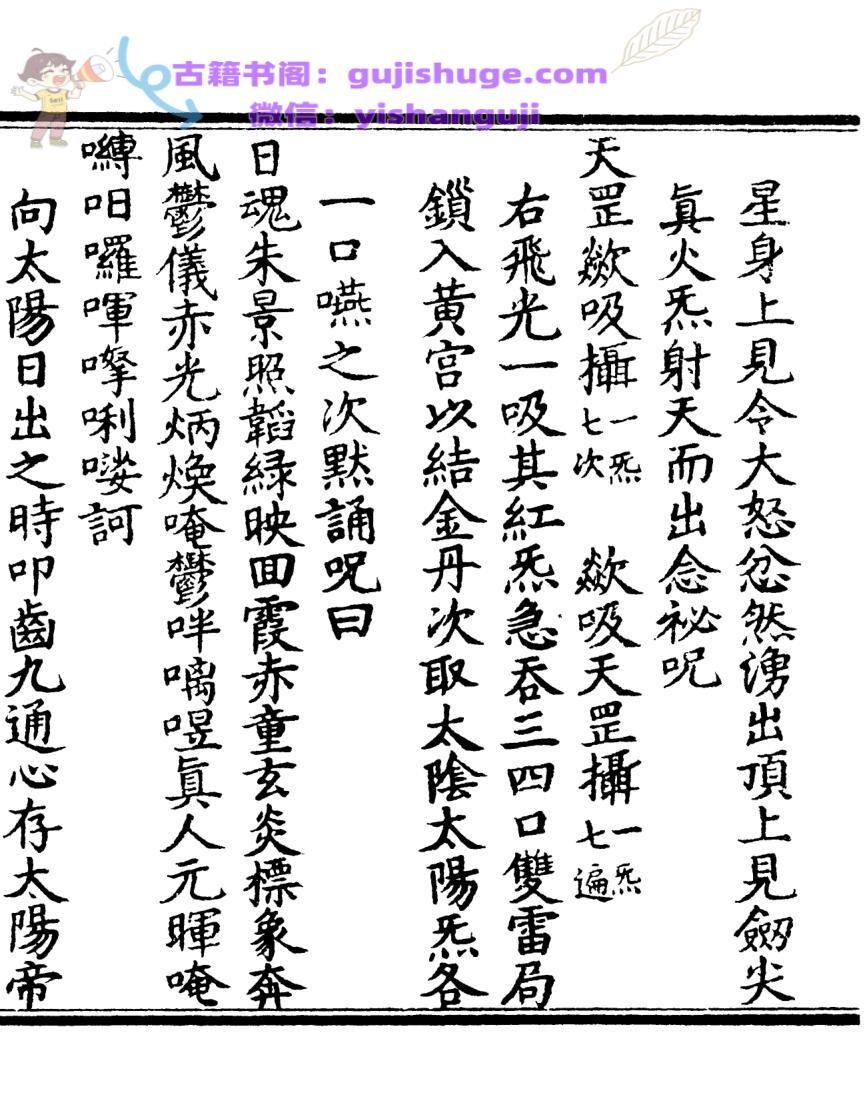 古籍书阁：gujishuge.com
微信：yishanguji
星身上見令大怒忿然湧出頂上見劔尖
眞火炁射天而出念祕呪
天罡歘吸攝一炁七次　歘吸天罡攝一炁七遍
右飛光一吸其紅炁急吞三四口雙雷局
鎖入黃宮以結金丹次取太陰太陽炁各
一口嚥之次默誦呪曰
日魂朱景照韜緑映回霞赤童玄炎標象奔
風鬱儀赤光炳煥唵鬱吽㗱㖀眞人元暉唵
嚩㕽囉㖇㗚唎㗎訶
向太陽日出之時叩齒九通心存太陽帝